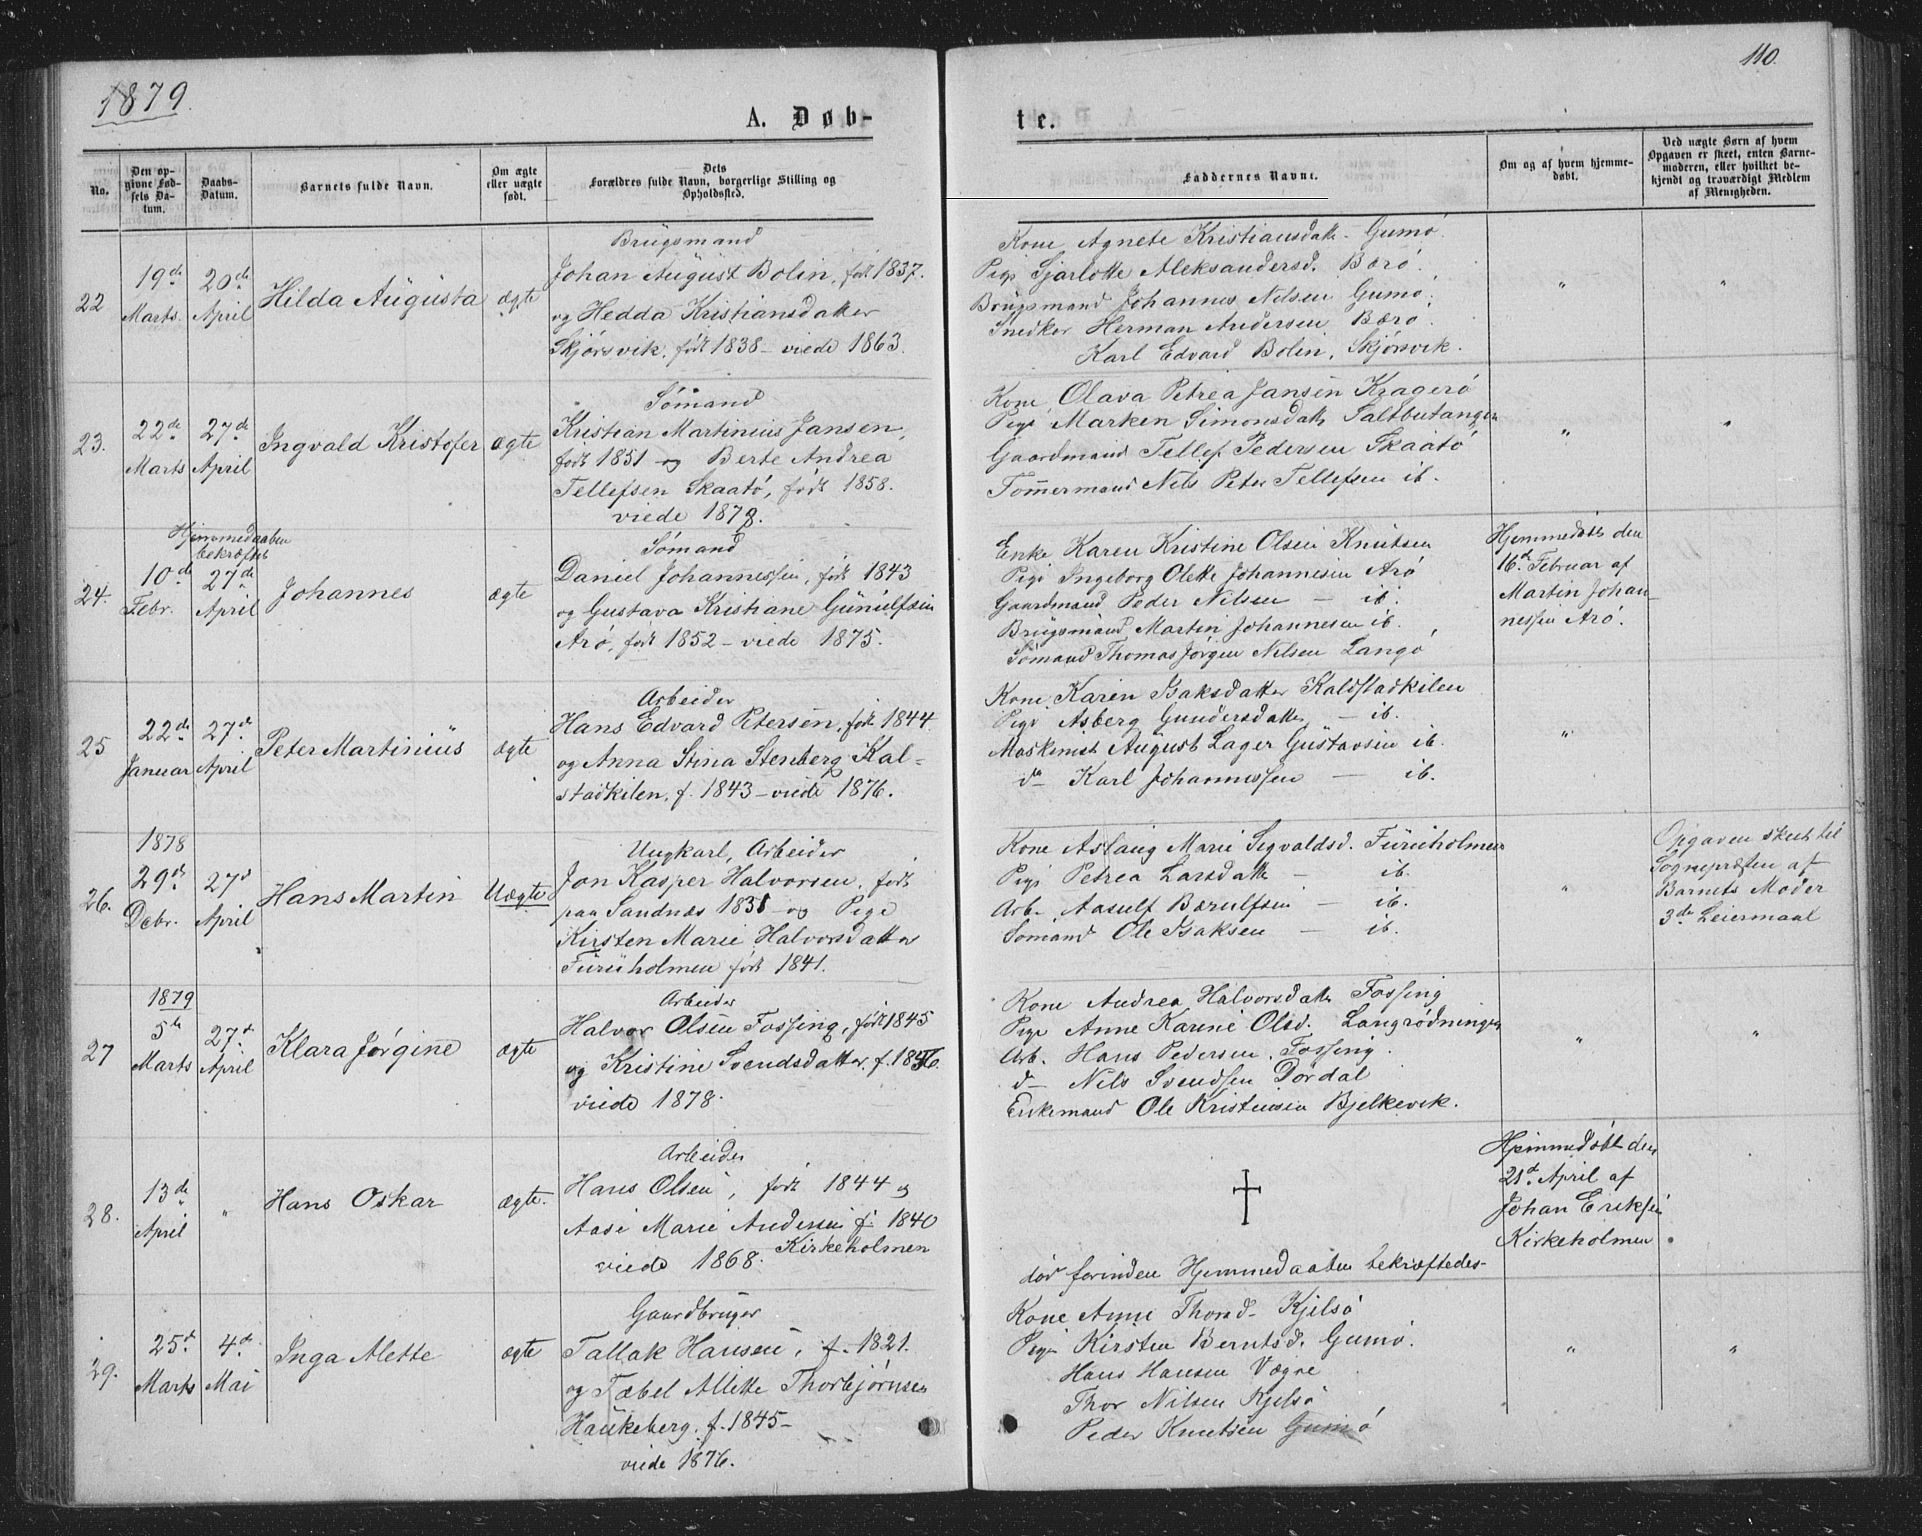 1879.
110.
A. Døb-
te.
No.
Den op-
givne Fød-
sels Da-
tum.
Daabs-
Datum.
Barnets fulde Navn.
Om ægte
eller uægte
født.
Dets
Forældres fulde Navn, borgerlige Stilling og
Opholdssted.
Faddernes Navne.
Om og af hvem hjemme-
døbt.
Ved uægte Børn af hvem
Opgaven er skeet, enten Barne-
moderen, eller hvilket be-
kjendt og troværdigt Medlem
af Menigheden.
22
19de
Marts.
20de
April
Hilda Augusta
ægte
Brugsmand
Johan August Bolin, født 1837.
og Hedda Kristiansdatter
Skjørsvik, født 1838 - viede 1863.
Kone Agnete Kristiansdatt. Gumø.
Pige Sjarlotte Aleksandersd. Bærø.
Brugsmand Johannes Nilsen Gumø.
Snedker Herman Andersen Bærø.
Karl Edvard Bolin, Skjørsvik.
"
"
23.
22de
Marts
27de
April
Ingvald Kristofer
ægte
Sømand
Kristian Martinius Jansen,
født 1851 og Berte Andrea
Tellefsen Skaatø, født 1858.
viede 1878.
Kone Olava Petrea Jansen Kragerø
Pige Marken Simonsdatt. Saltbutangen
Gaardmand Tellef Pedersen Skaatø
Tømmermand Nils Peter Tellefsen ib.
"
"
24.
Hjemmedaaben
bekræftet
10de
Febr.
27de
April
Johannes
ægte
Sømand
Daniel Johannessen, født 1843
og Gustava Kristiane Gunulfsen
Arø, født 1852 - viede 1875.
Enke Karen Kristine Olsen Knutsen
Pige Ingeborg Olette Johannesen Arø
Gaardmand Peder Nilsen - ib.
Brugsmand Martin Johannesen ib.
Sømand Thomas Jørgen Nilsen Langø
Hjemmedøbt den
16de Februar af
Martin Johan-
nessen Arø.
25
22de
Januar
27d
April
Peter Martinius
ægte
Arbeider
Hans Edvard Petersen, født 1844
og Anna Stina Stenberg Kal-
stadkilen, f. 1843 - viede 1876.
Kone Karen Isaksdatter Kaldstadkilen
Pige Asberg Gundersdatter - ib.
Maskinist August Lager Gustavsen ib.
do Karl Johannessen - ib.
"
26.
1878
29de
Debr.
27d
April
Hans Martin
Uægte
Ungkarl, Arbeider
Jon Kasper Halvorsen, født
paa Sandnæs 1838 - og Pige
Kirsten Marie Halvorsdatter
Furuholmen født 1841.
Kone Aslaug Marie Sigvaldsd. Furuholmen
Pige Petrea Larsdatt. - ib.
Arb. Aasulf Bærulfsen - ib.
Sømand Ole Isaksen - ib.
"
Opgaven skeet til
Sognepræsten af
Barnets Moder
3de Leiermaal
27
1879
5te
Marts
27d
April
Klara Jørgine
ægte
Arbeider
Halvor Olsen Fossing, født 1845
og Kristine Svendsdatter, f. 1856.
viede 1878.
Kone Andrea Halvorsdatter Fossing
Pige Anne Karine Olsd. Langrødningen
Arb. Hans Pedersen, Fossing.
d- Nils Svendsen Dørdal
Enkemand Ole Kristensen Bjelkevik.
"
"
28.
13de
April
"
Hans Oskar
ægte.
Arbeider
Hans Olsen, født 1844 og
Aase Marie Andersen f. 1840
Kirkeholmen
viede 1868.
†
død forinden Hjemmedaaben bekræftedes-
Hjemmedøbt den
21d. April af
Johan Eriksen
Kirkeholmen
29.
25d
Marts
4d
Mai
Inga Alette
ægte
Gaardbruger
Tallak Hansen, f. 1821.
og Tæbel Alette Thorbjørnsen
Haukeberg, f. 1845 -
viede 1876.
Kone Anne Thorsd. Kjelsø
Pige Kirsten Berntsd. Gumø.
Hans Hansen Vægne
Thor Nilsen Kjelsø
Peder Knutsen Gumø
"
"